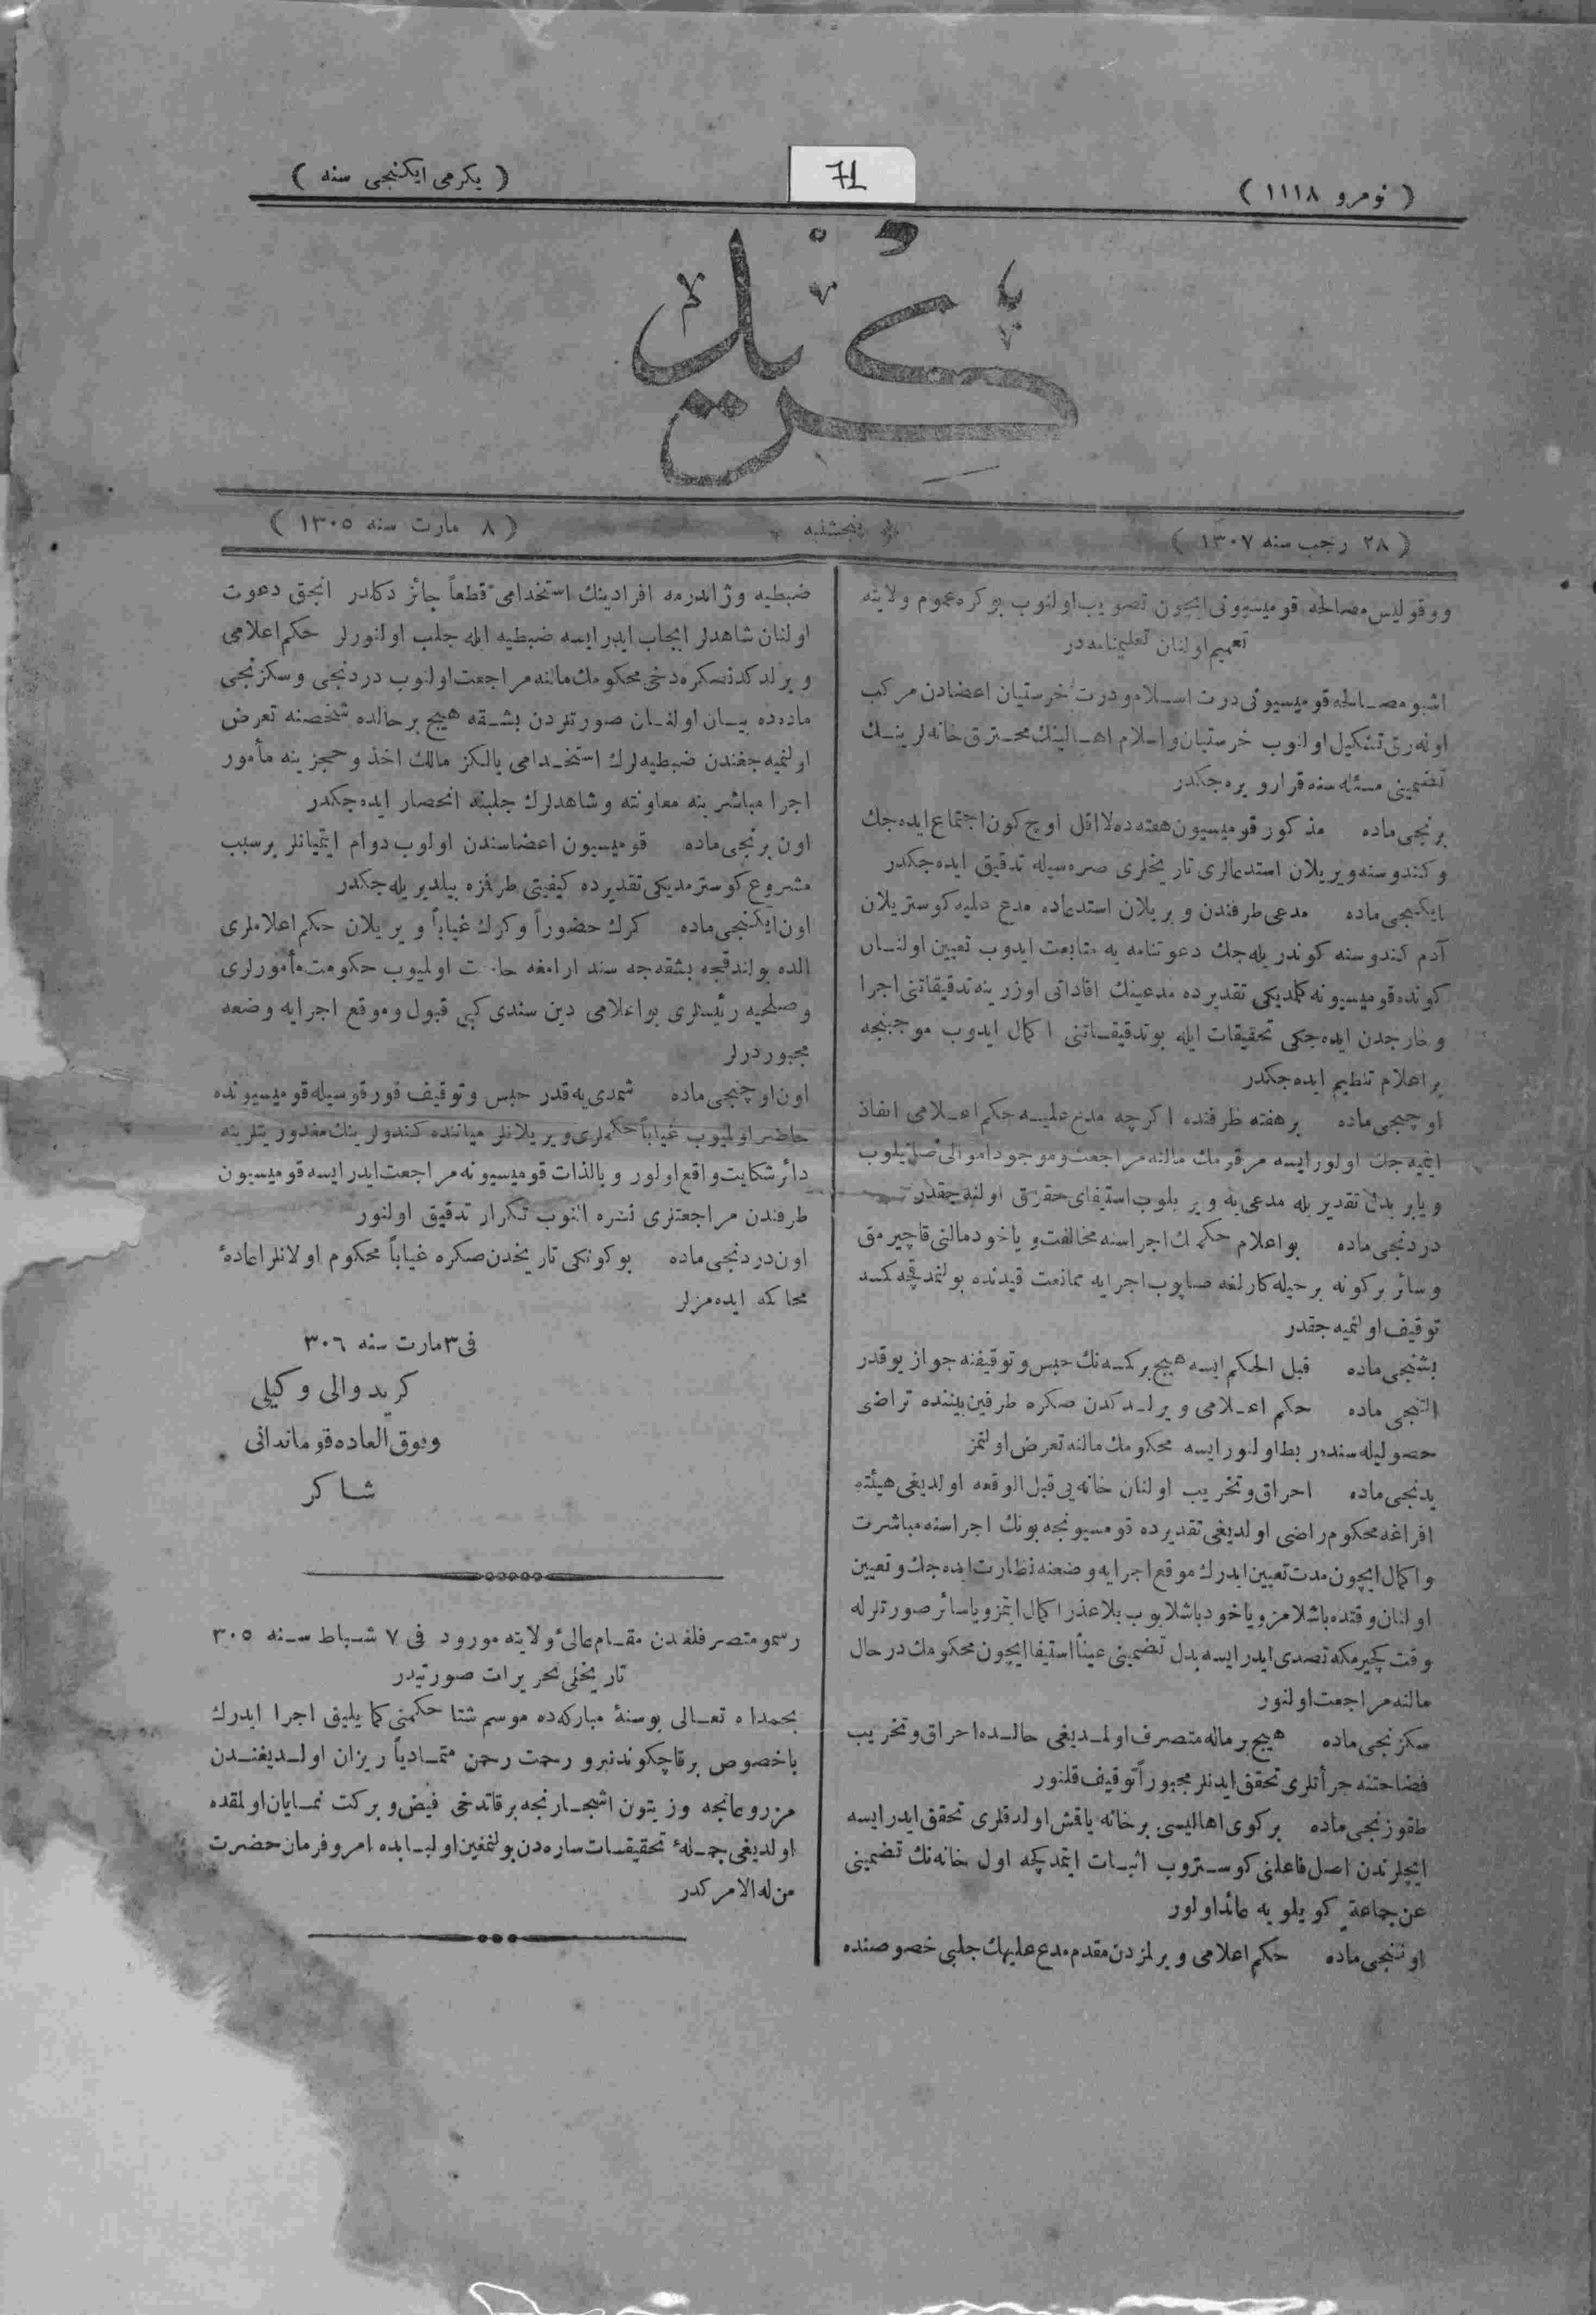 ( نومرو ١١١٨ )
71
( يكرمى ايكنجى سنه )
كريد
( ٢٨ رجب سنه ١٣٠٧ )
پنجشنبه
( ٨ مارت سنه ١٣٠٥ )
ووقوليس مصالحه قوميسيونى ايچون تصويب اولنوب بوكره عموم ولايته
تعميم اولنان تعليمنامه در
اشبو مصـالحه قوميسيونى درت اسـلام ودرت خرستيان اعضادن مركب
اوله رق تشكيل اولنوب خرستيان واسلام اهـالينك محـترق خانه لرينـك
تضمينى مسئله سنه قرار ويره جكدر
برنجى ماده مذكور قوميسيون هفته ده لااقل اوچ كون اجتماع ايده جك
وكندوسنه ويريلان استدعالرى تاريخلرى صره سيله تدقيق ايده جكدر
ايكنجى ماده مدعى طرفندن ويريلان استدعاده مدعى عليه كوستريلان
آدم كندوسنه كوندريله جك دعوتنامه يه متابعت ايدوب تعيين اولنـان
كونده قوميسيونه كلمديكى تقديرده مدعينك افاداتى اوزرينه تدقيقاتنى اجرا
وخارجدن ايده جكى تحقيقات ايله بوتدقيقـاتنى اكمال ايدوب موجبنجه
بر اعلام تنظيم ايده جكدر
اوچنجى ماده بر هفته ظرفنده اكرچه مدعى عليـه حكم اعـلامى انفاذ
ايتميه جك اولور ايسه مرقومك مالنه مراجعت وموجود اموالى صاتيلوب
ويا بر بدل تقدير يله مدعى يه ويريلوب استيفاى حقوق اولنه جقدر
دردنجى ماده بو اعلام حكمك اجراسنه مخالفت وياخود مالنى قاچيرمق
وسائر بركونه بر حيله كارلغه صاپوب اجرايه ممانعت قيدنده بولنمدقچه كسه
توقيف اولنميه جقدر
بشنجى ماده قبل الحكم ايسه هيچ بركسه نك حبس وتوقيفنه جواز يوقدر
التنجى ماده حكم اعـلامى ويرلـدكدن صكره طرفين بيننده تراضى
حصوليله سندر بط اولنور ايسه محكومك مالنه تعرض اولنمز
يدنجى ماده احراق وتخريب اولنان خانه يى قبل الوقعه اولديغى هيئته
افراغه محكوم راضى اولديغى تقديرده قومسيونجه بونك اجراسنه مباشرت
واكمال ايچون مدت تعيين ايدرك موقع اجرايه وضعنه نظارت ايده جك وتعيين
اولنان وقتده باشلامز وياخود باشلايوب بلا عذر اكمال ايتمز وياسائر صورتلرله
وقت كچيرمكه تصدى ايدر ايسه بدل تضمينى عيناً استيفا ايچون محكومك درحال
مالنه مراجعت اولنور
سكزنجى ماده هيچ بر ماله متصرف اولمـديغى حالـده احراق وتخريب
فضاحتنه جرأتلرى تحقق ايدنلر مجبوراً توقيف قلنور
طقوزنجى ماده بركوى اهاليسى بر خانه ياقش اولدقلرى تحقق ايدر ايسه
ايچلرندن اصل فاعلنى كوسـتروب اثبـات ايتمدكچه اول خانه نك تضمينى
عن جماعة كويلويه عائد اولور
اوننجى ماده حكم اعلامى ويرلمزدن مقدم مدعى عليهك جلبى خصوصنده
ضبطيه وژاندرمه افرادينك استخدامى قطعاً جائز دكلدر انجق دعوت
اولنان شاهدلر ايجاب ايدر ايسه ضبطيه ايله جلب اولنورلر حكم اعلامى
ويرلدكدنصكره دخى محكومك مالنه مراجعت اولنوب دردنجى وسكزنجى
ماده ده بيـان اولنـان صورتلردن بشـقه هيچ بر حالده شخصنه تعرض
اولنميه جغندن ضبطيه لرك استخـدامى يالكز مالك اخذ وحجزينه مأمور
اجرا مباشرينه معاونته وشاهدلرك جلبنه انحصار ايده جكدر
اون برنجى ماده قوميسيون اعضاسندن اولوب دوام ايتميانلر برسبب
مشروع كوسترمديكى تقديرده كيفيتى طرفزه بيلديريله جكدر
اون ايكنجى ماده كرك حضوراً وكرك غياباً ويريلان حكم اعلاملرى
الده بولندقجه بشقه جه سند ارامغه حاجت اوليوب حكومت مأمورلرى
وصلحيه رئيسلرى بو اعلامى دين سندى كبى قبول وموقع اجرايه وضعه
مجبوردرلر
اون اوچنجى ماده شمدى يه قدر حبس وتوقيف قورقوسيله قوميسيونده
حاضر اوليوب غياباً حكملرى ويريلانلر مياننده كندولرينك مغدوريتلرينه
دائر شكايت واقع اولور وبالذات قوميسيونه مراجعت ايدر ايسه قوميسيون
طرفندن مراجعتلرى نسره النوب تكرار تدقيق اولنور
اون دردنجى ماده بوكونكى تاريخدن صكره غياباً محكوم اولانلر اعادهٔ
محاكمه ايده مزلر
فى ٣ مارت سنه ٣٠٦
كريد والى وكيلى
وفوق العاده قوماندانى
شـاكر
رسمو متصرفلغندن مقـام عالىٔ ولايته مورود فى ٧ شـباط سـنه ٣٠٥
تاريخلى تحريرات صورتيدر
بحمداه تعـالى بوسنهٔ مباركه ده موسم شتا حكمنى كما يليق اجرا ايدرك
باخصوص برقاچ كوندنبرو رحمت رحمن متمـادياً ريزان اولـديغنـدن
مزروعاتجه وزيتون اشجـارنجه برقاتدخى فيض وبركت نمـايان اولمقده
اولديغى جمـلهٔ تحقيقـات ساره دن بولنمغين اولبـابده امر وفرمان حضرت
من له الامركدر